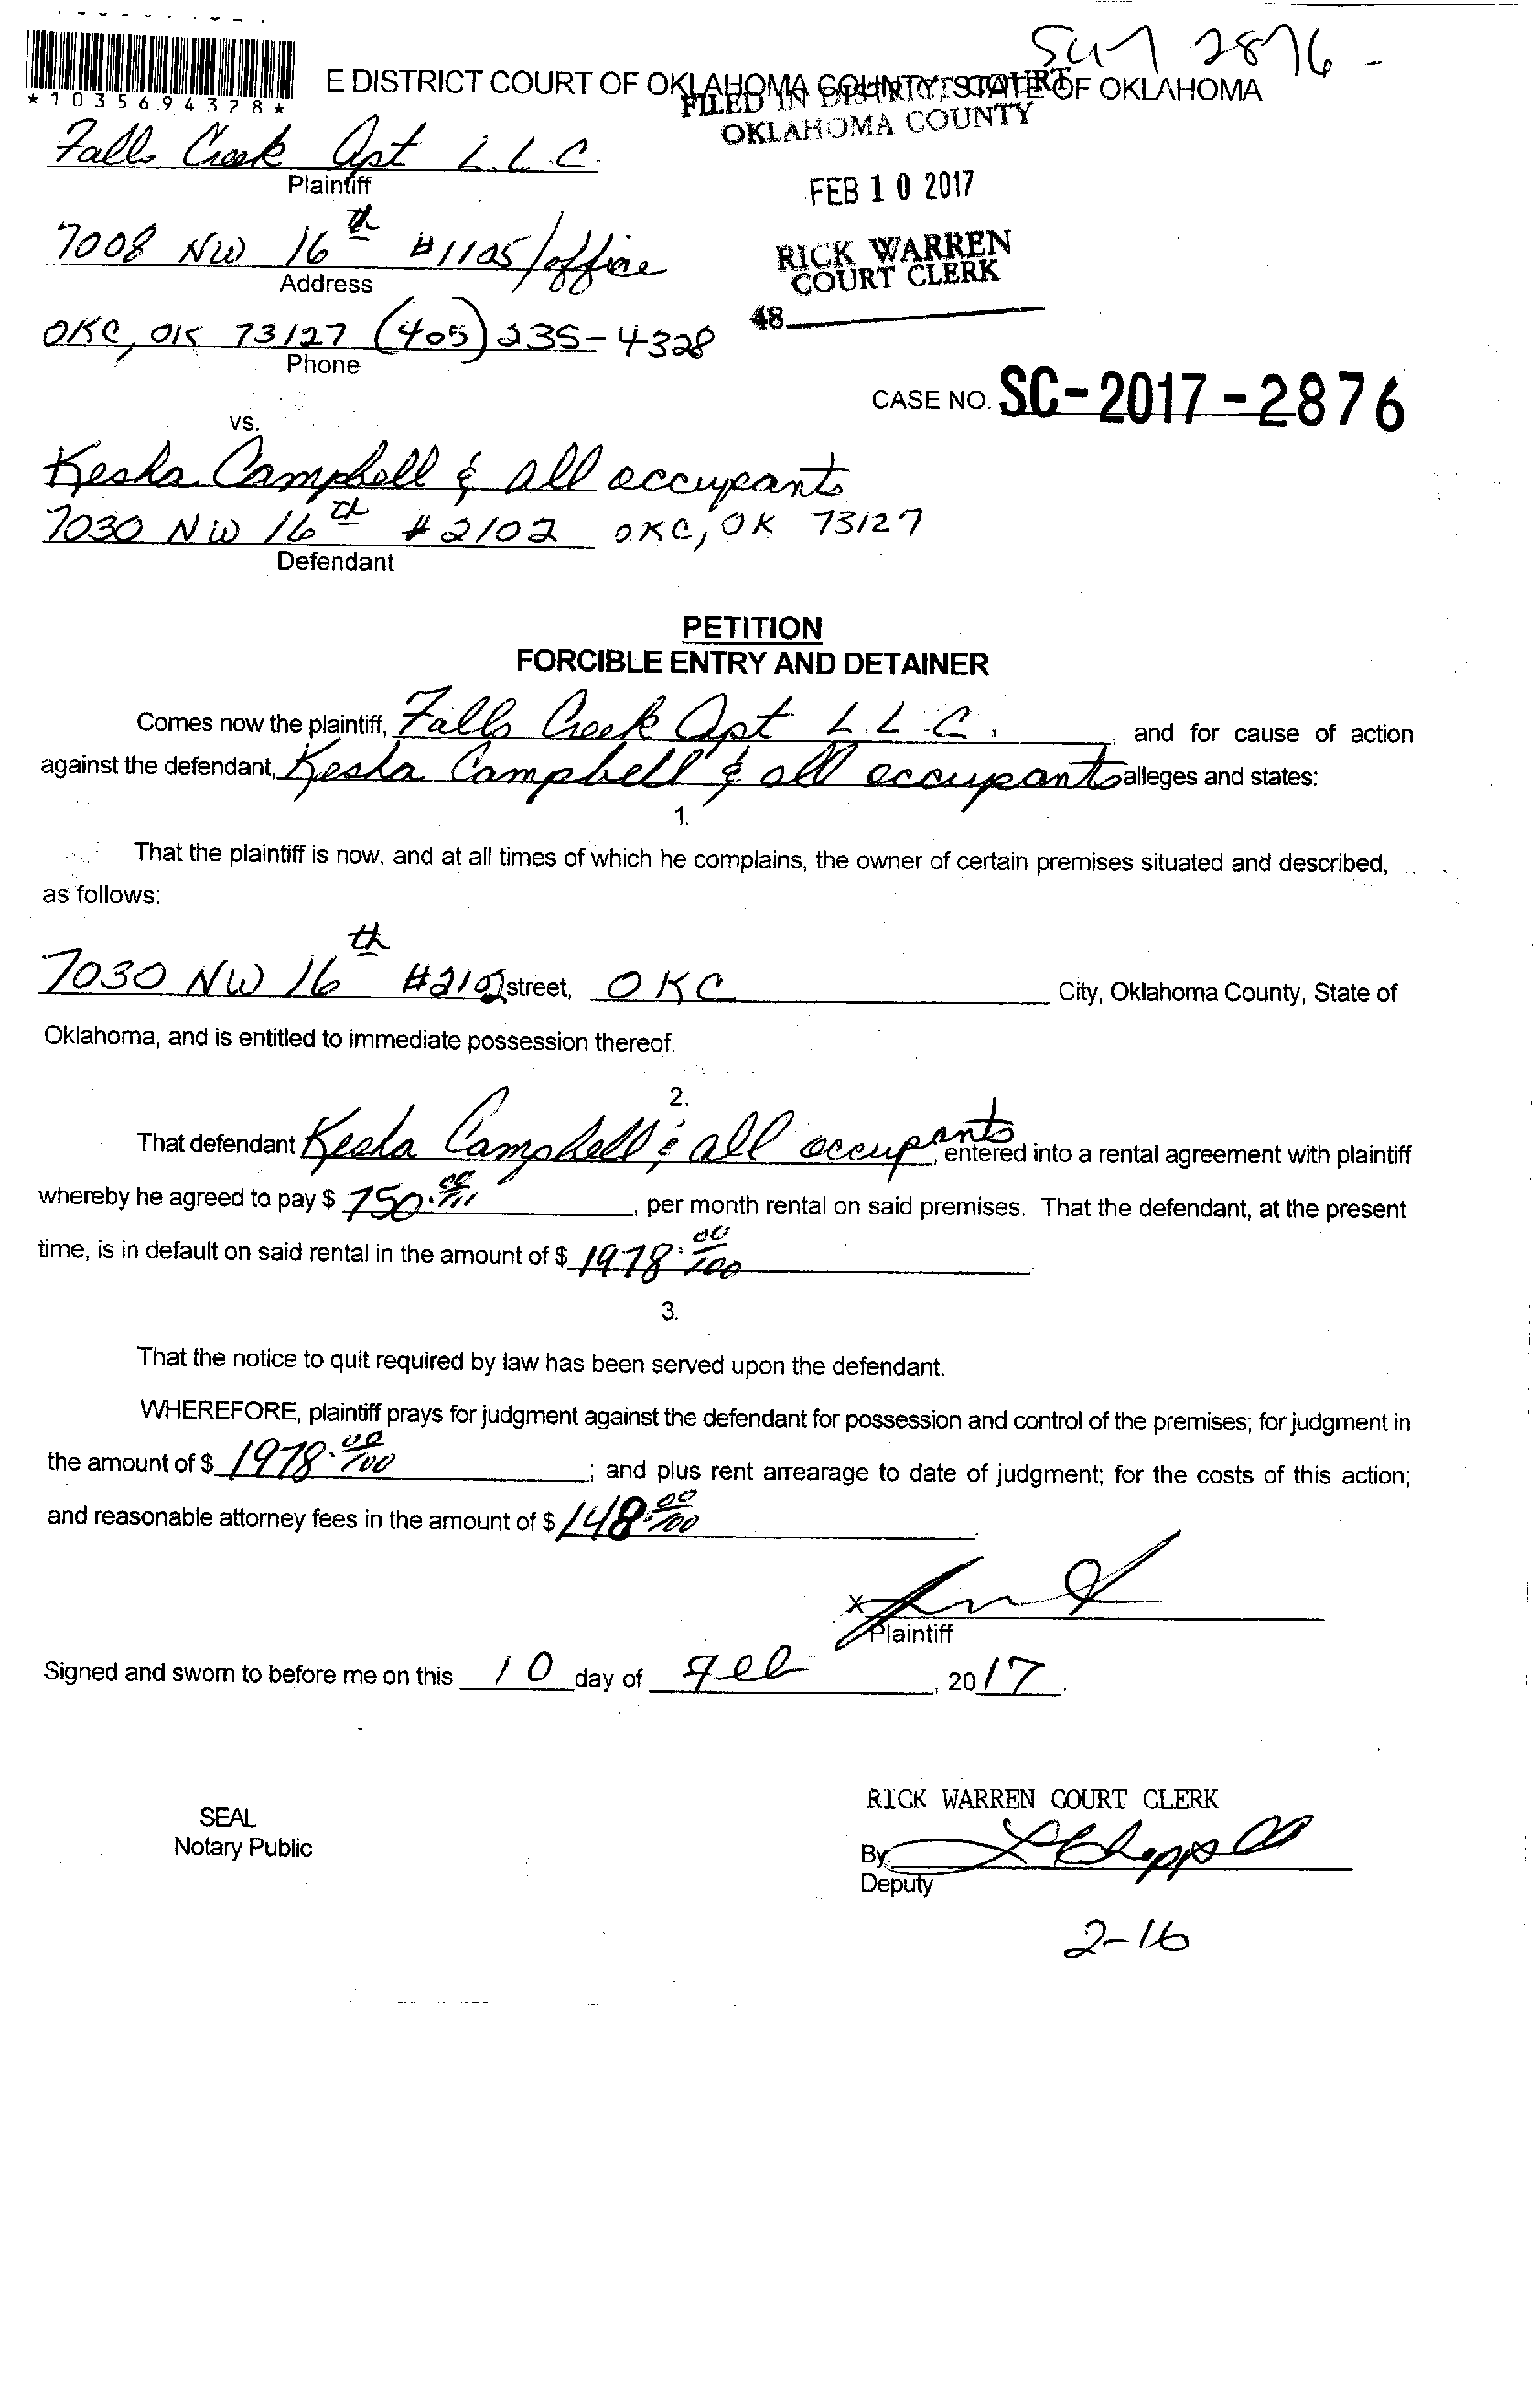 SC17 2876 -
*1035694378*
E DISTRICT COURT OF OKLAHOMA COUNTY, STATE OF OKLAHOMA
FILED IN DISTRICT COURT
OKLAHOMA COUNTY
Falls Creek Apt L.L.C.
Plaintiff
FEB 10 2017
7008 NW 16th #1105/office
Address
RICK WARREN
COURT CLERK
48
OKC, OK 73127 (405) 235-4328
Phone
CASE NO. SC-2017-2876
vs.
Kesha Campbell & all occupants
7030 NW 16th #2102 OKC, OK 73127
Defendant
PETITION
FORCIBLE ENTRY AND DETAINER
Comes now the plaintiff, Falls Creek Apt L.L.C., and for cause of action
against the defendant, Kesha Campbell & all occupants alleges and states:
1.
That the plaintiff is now, and at all times of which he complains, the owner of certain premises situated and described,
as follows:
7030 NW 16th #2102 street, OKC City, Oklahoma County, State of
Oklahoma, and is entitled to immediate possession thereof.
2.
That defendant Kesha Campbell & all occupants, entered into a rental agreement with plaintiff
whereby he agreed to pay $ 750.00/100, per month rental on said premises. That the defendant, at the present
time, is in default on said rental in the amount of $ 1978.00/100.
3.
That the notice to quit required by law has been served upon the defendant.
WHEREFORE, plaintiff prays for judgment against the defendant for possession and control of the premises; for judgment in
the amount of $ 1978.00/100; and plus rent arrearage to date of judgment; for the costs of this action;
and reasonable attorney fees in the amount of $ 148.00/100.
X
Plaintiff
Signed and sworn to before me on this 10 day of Feb, 2017.
RICK WARREN COURT CLERK
SEAL
Notary Public
By:
Deputy
2-16